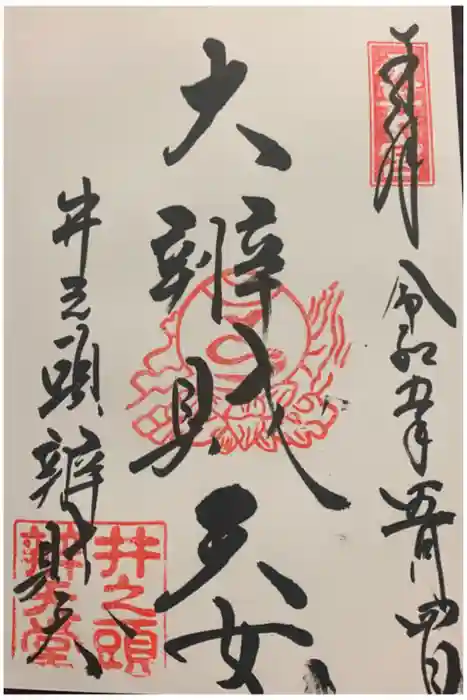 奉拝
令和五年五月四日
大辨財天女
井之頭辨財天
井之頭
辨天堂